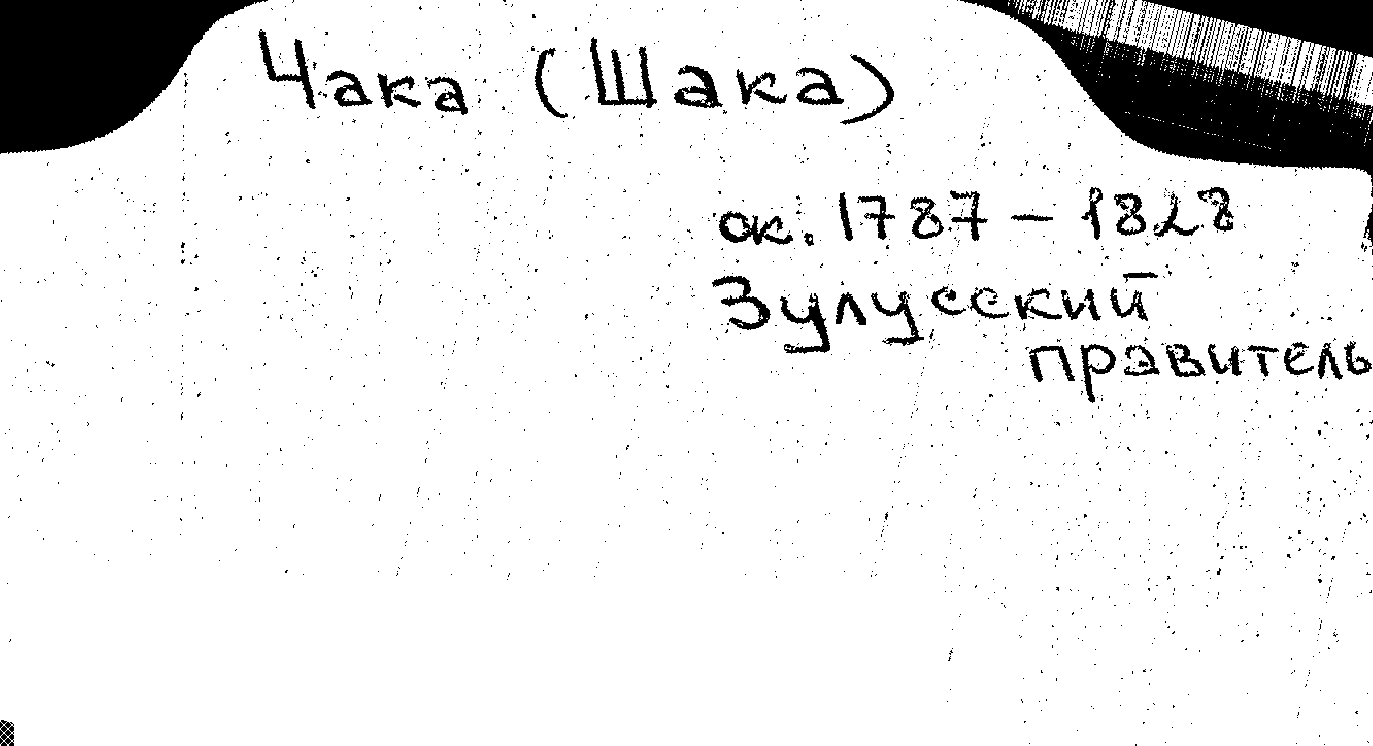 Чака (Шака)
ок. 1787 – 1828
Зулусский
правитель